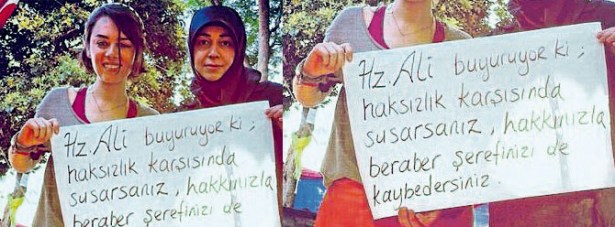 Hz. Ali buyuruyor ki ;
haksızlık karşısında
susarsanız, hakkınızla
beraber şerefinizi de
Hz. Ali buyuruyor ki ;
haksızlık karşısında
susarsanız, hakkınızla
beraber şerefinizi de
kaybedersiniz.